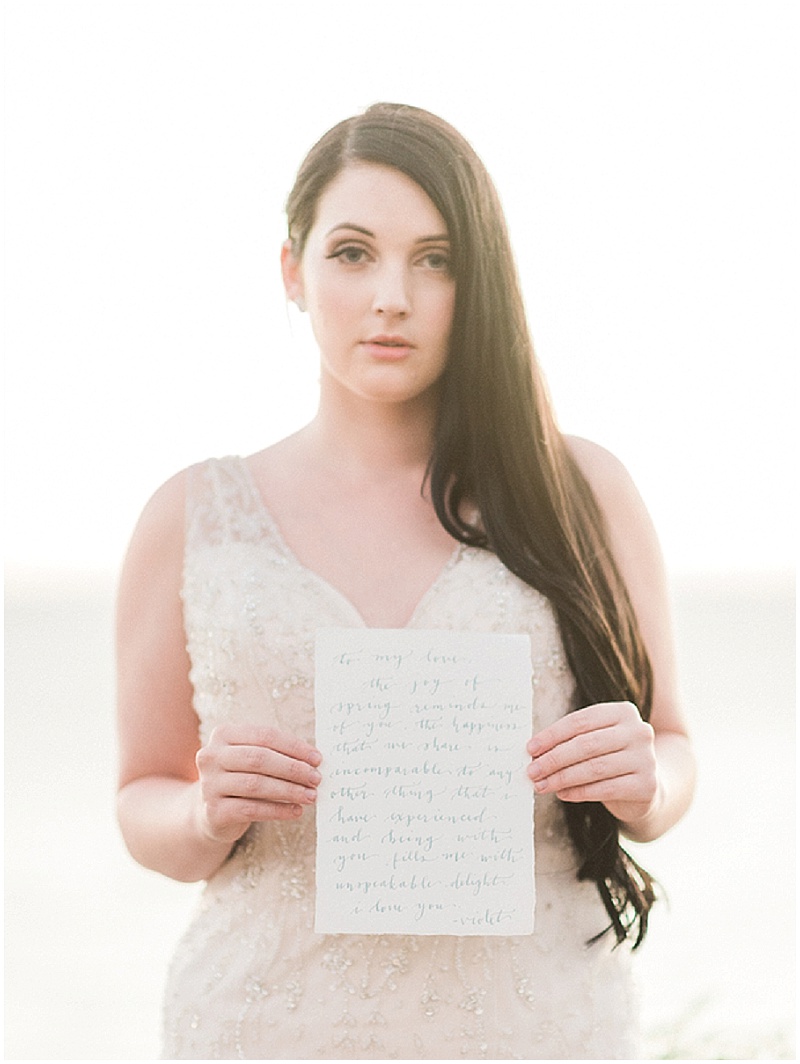 to my love.
the joy of
spring reminds me
of you. the happiness
that we share is
incomparable to any
other thing that i
have experienced.
and being with
you fills me with
unspeakable delight.
i love you.
-violet